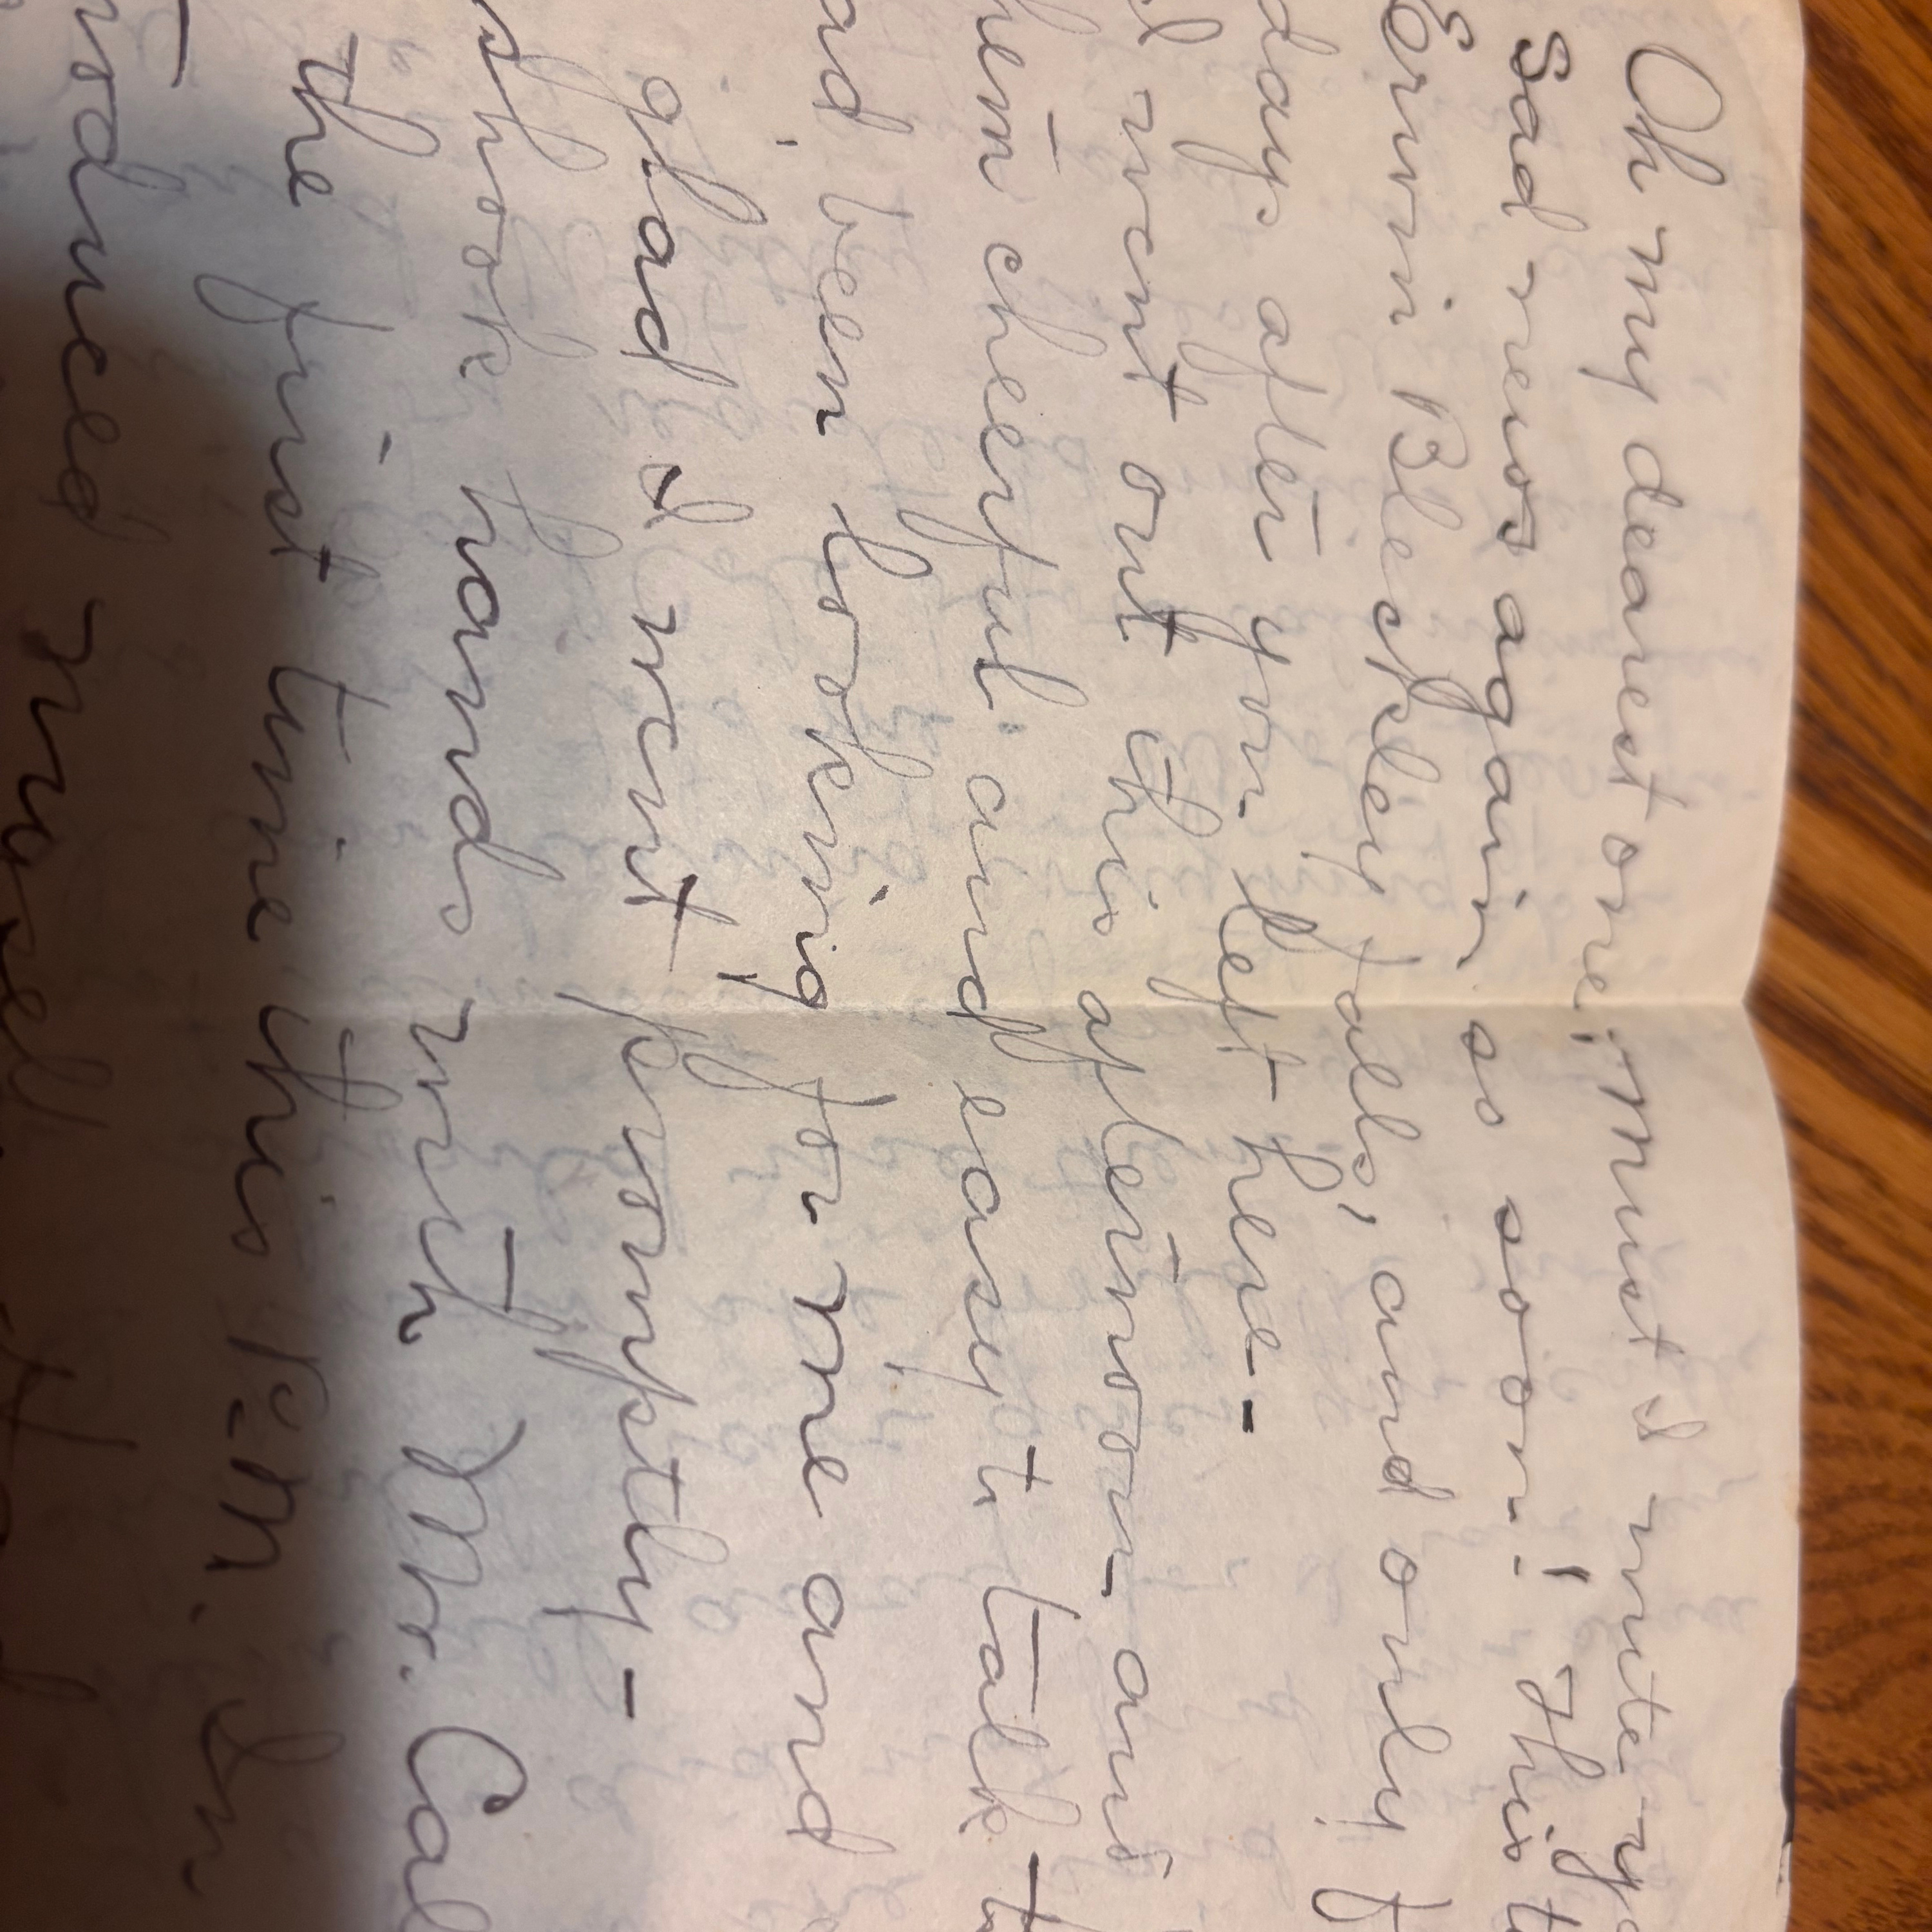 Oh my dearest one; must I write
Sad news again so soon! This
Ervin Bleckley falls, and only
days after you left here-
I went out this afternoon and
them cheerful and easy to talk
ad been looking for me and
glad I went promptly-
shook hands with Mr. Cal
the first time this P.M. In